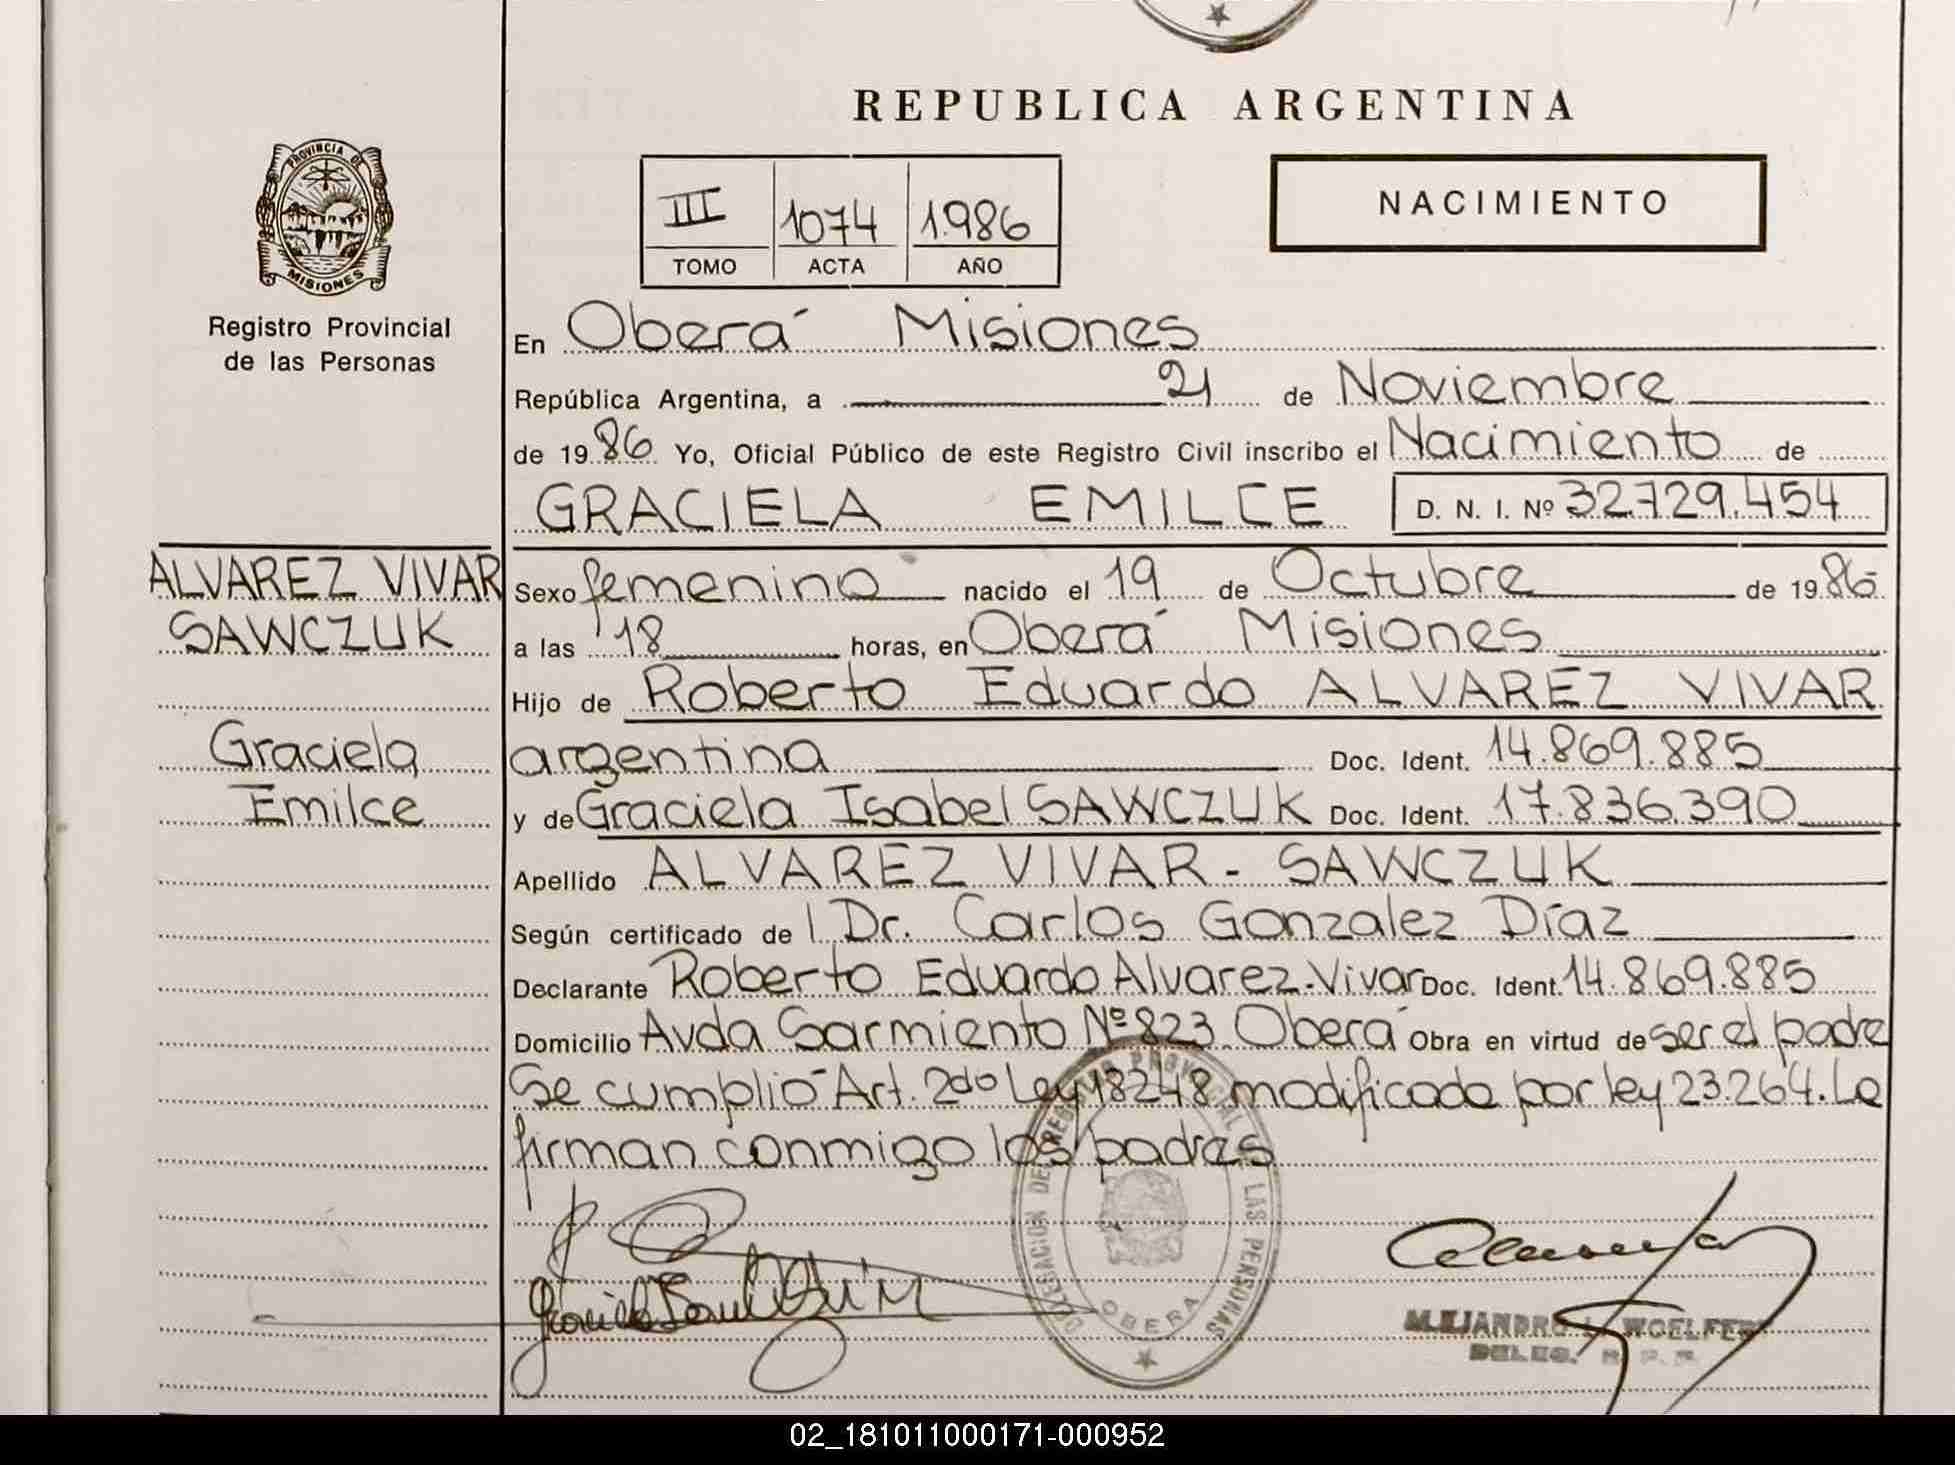 REPUBLICA ARGENTINA
PROVINCIA DE
MISIONES
Registro Provincial
de las Personas
III 1074 1.986
TOMO ACTA AÑO
NACIMIENTO
En Oberá Misiones
República Argentina, a 21 de Noviembre
de 19 86 Yo, Oficial Público de este Registro Civil inscribo el Nacimiento de
GRACIELA EMILCE D. N. I. Nº 32.729.454
ALVAREZ VIVAR
SAWCZUK
Graciela
Emilce
Sexo femenino nacido el 19 de Octubre de 19 86
a las 18 horas, en Oberá Misiones
Hijo de Roberto Eduardo ALVAREZ VIVAR
argentina Doc. Ident. 14.869.885
y de Graciela Isabel SAWCZUK Doc. Ident. 17.836.390
Apellido ALVAREZ VIVAR - SAWCZUK
Según certificado de l Dr. Carlos Gonzalez Díaz
Declarante Roberto Eduardo Alvarez-Vivar Doc. Ident. 14.869.885
Domicilio Avda Sarmiento Nº 823 Oberá Obra en virtud de ser el padre
Se cumplió Art. 2do Ley 18248 modificada por ley 23.264. La
firman conmigo los padres
DELEGACION DE REGISTRO PROVINCIAL DE LAS PERSONAS
OBERA
WOELFERT
DELEG. R. P. P.
02_181011000171-000952